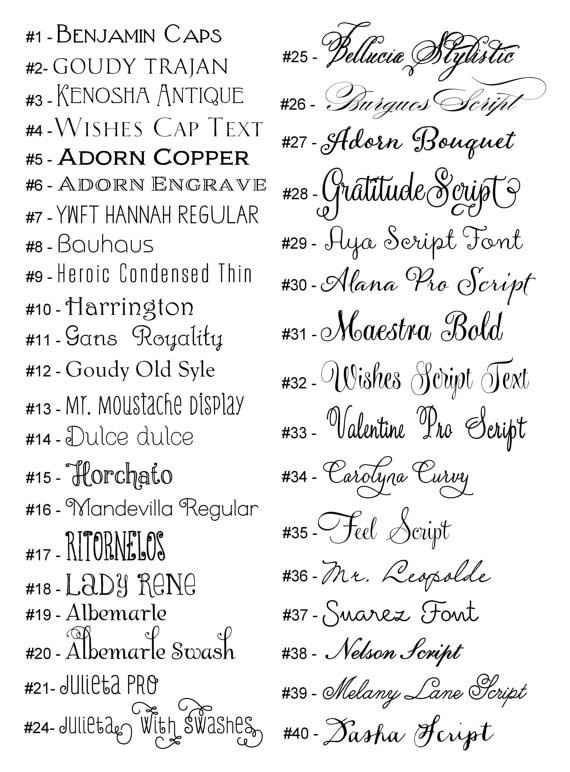 #1 - Benjamin Caps
#2- GOUDY TRAJAN
#3 - Kenosha Antique
#4 - Wishes Cap Text
#5 - Adorn Copper
#6 - Adorn Engrave
#7 - YWFT HANNAH REGULAR
#8 - Bauhaus
#9 - Heroic Condensed Thin
#10 - Harrington
#11 - Gans Royality
#12 - Goudy Old Syle
#13 - Mr. Moustache Display
#14 - Dulce dulce
#15 - Horchato
#16 - Mandevilla Regular
#17 - RITORNELOS
#18 - Lady Rene
#19 - Albemarle
#20 - Albemarle Swash
#21- Julieta Pro
#24- Julieta with Swashes
#25 - Bellucia Stylistic
#26 - Burgues Script
#27 - Adorn Bouquet
#28 - Gratitude Script
#29 - Aya Script Font
#30 - Alana Pro Script
#31 - Maestra Bold
#32 - Wishes Script Text
#33 - Valentine Pro Script
#34 - Carolyna Curvy
#35 - Feel Script
#36 - Mr. Leopolde
#37 - Suarez Font
#38 - Nelson Script
#39 - Melany Lane Script
#40 - Dasha Script